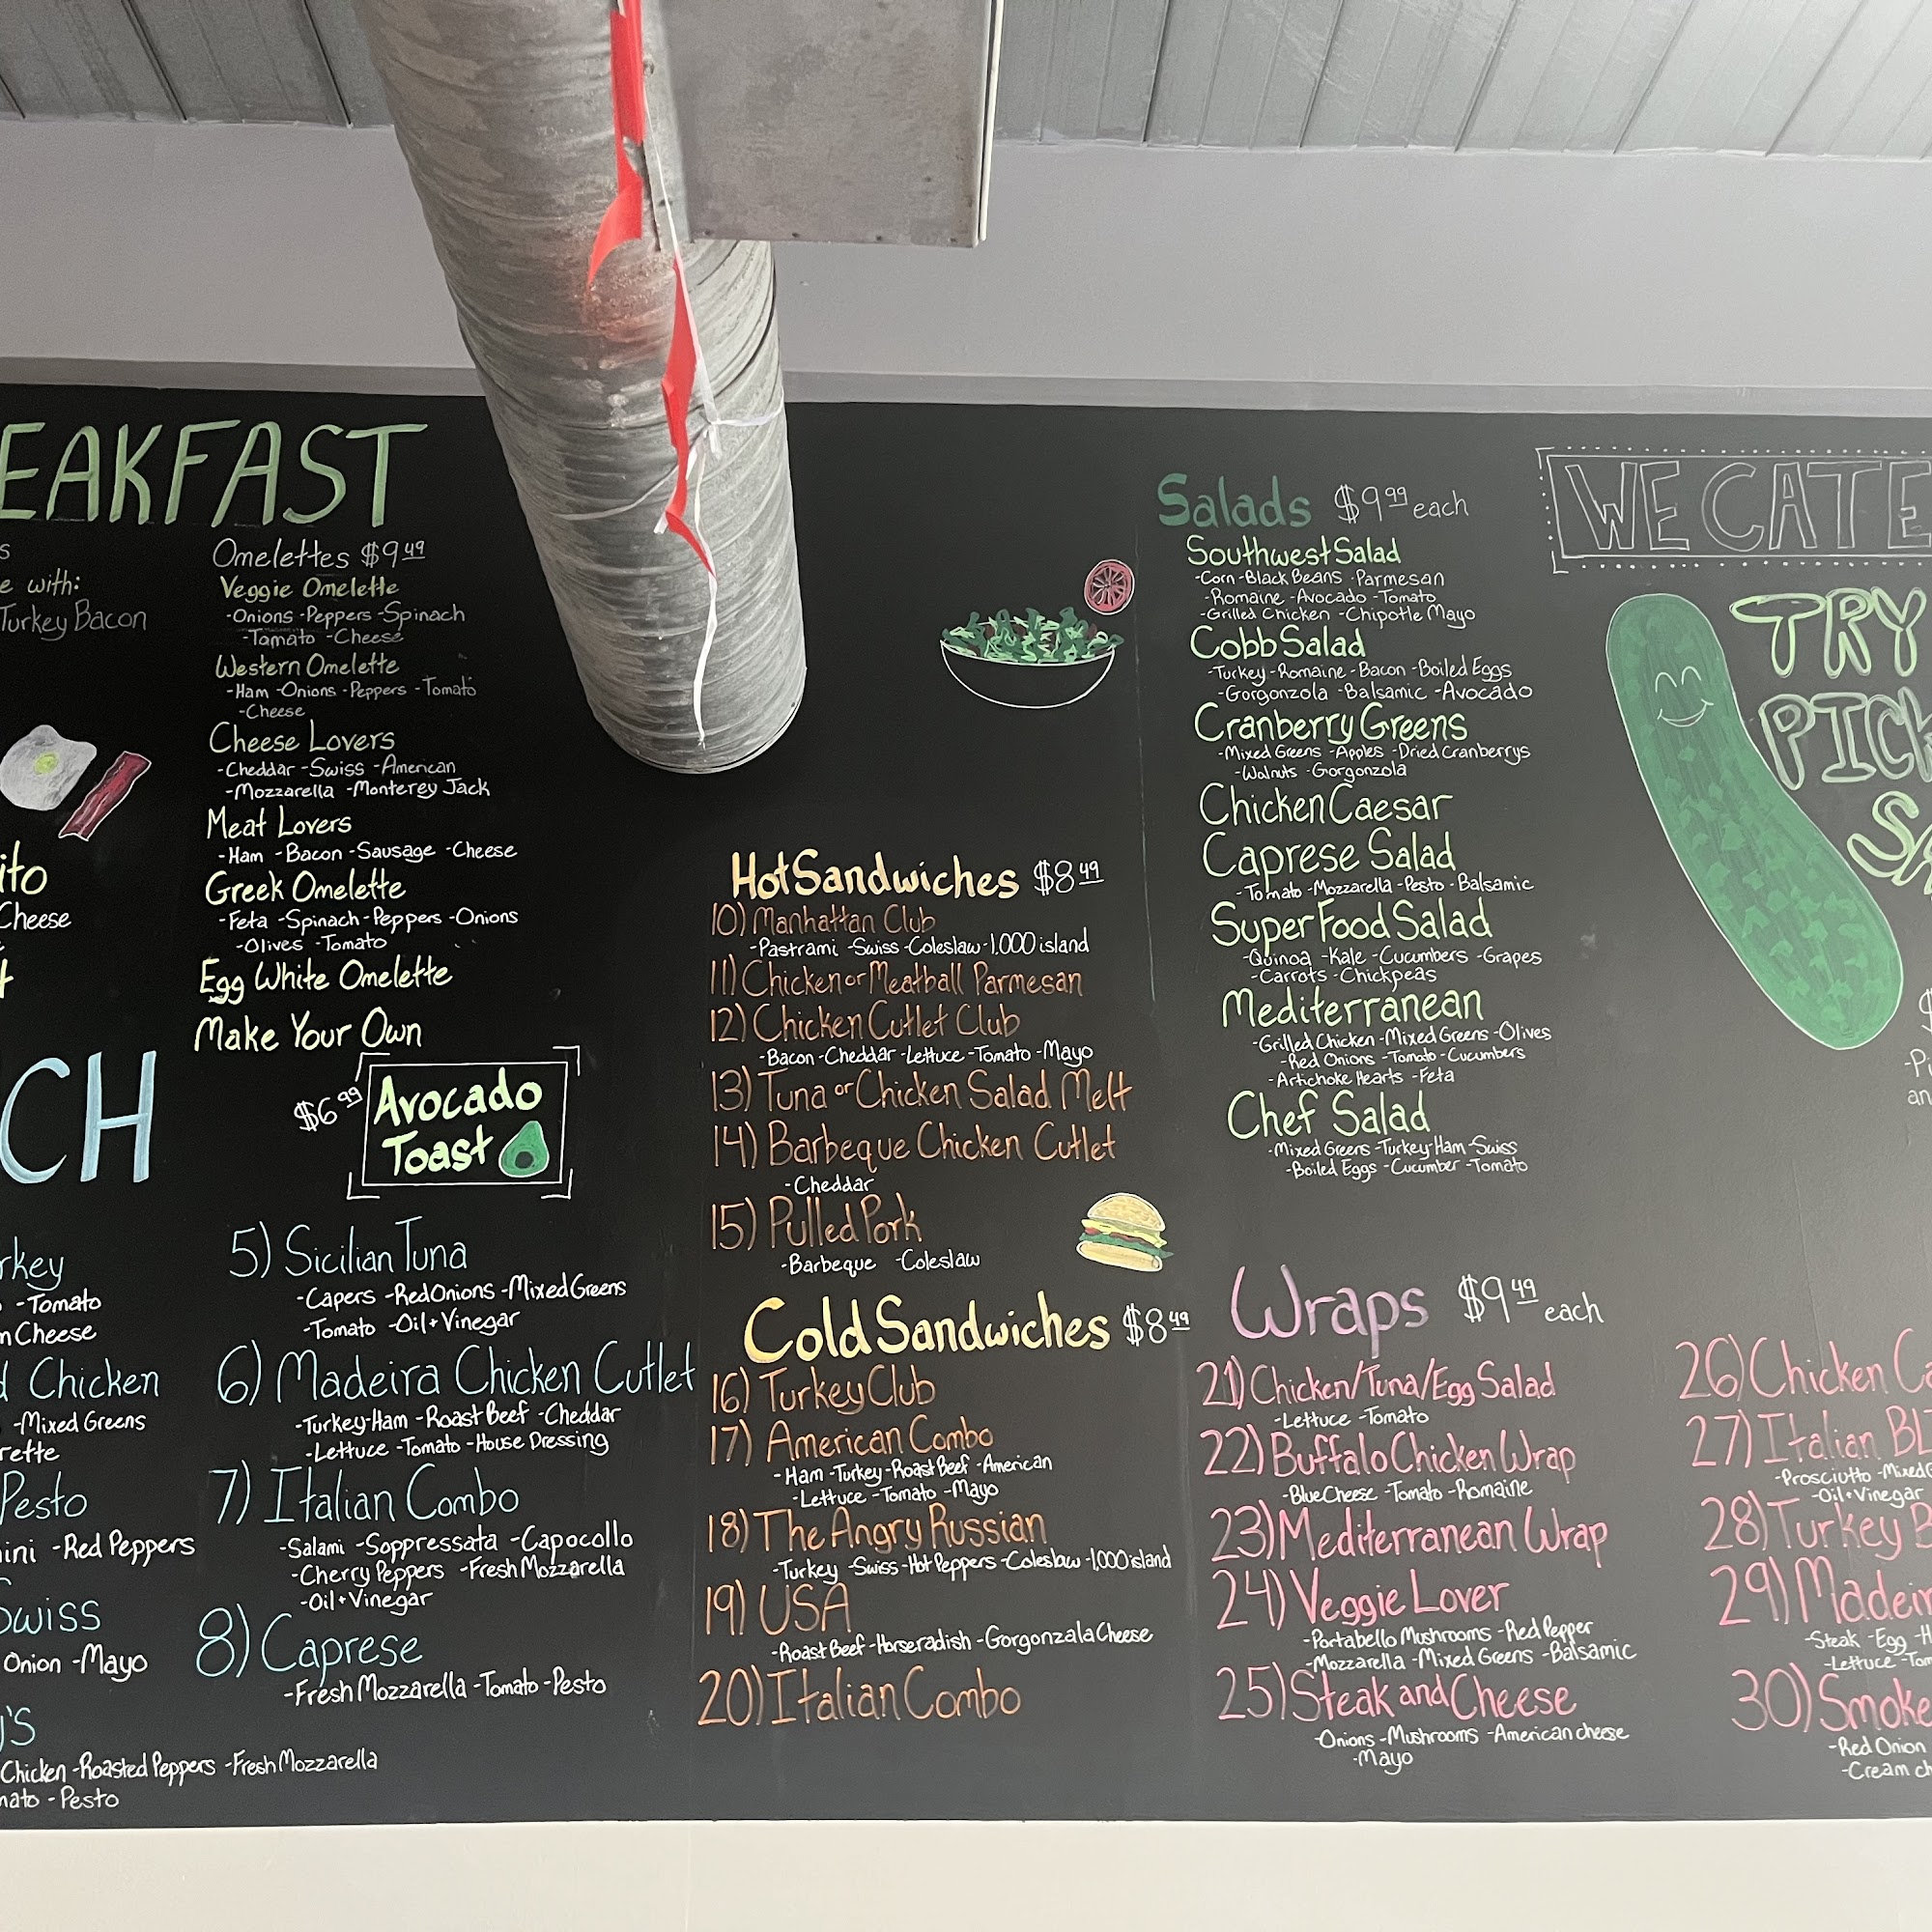 EAKFAST
s
e with:
Turkey Bacon
ito
Cheese
Omelettes $9.49
Veggie Omelette
-Onions -Peppers -Spinach
-Tamato -Cheese
Western Omelette
-Ham -Onions -Peppers -Tomato
-Cheese
Cheese Lovers
-Cheddar -Swiss -American
-Mozzarella -Monterey Jack
Meat Lovers
-Ham -Bacon -Sausage -Cheese
Greek Omelette
-Feta -Spinach -Peppers -Onions
-Olives -Tomato
Egg White Omelette
Make Your Own
$6.99 Avocado
Toast
CH
rkey
-Tomato
n Cheese
d Chicken
-Mixed Greens
rette
Pesto
ini -Red Peppers
Swiss
Onion -Mayo
's
Chicken -Roasted Peppers -Fresh Mozzarella
mato -Pesto
5) Sicilian Tuna
-Capers -Red Onions -Mixed Greens
-Tomato -Oil+Vinegar
6) Madeira Chicken Cutlet
-Turkey-Ham -Roast Beef -Cheddar
-Lettuce -Tomato -House Dressing
7) Italian Combo
-Salami -Soppressata -Capocollo
-Cherry Peppers -Fresh Mozzarella
-Oil+Vinegar
8) Caprese
-Fresh Mozzarella -Tomato -Pesto
Hot Sandwiches $8.49
10) Manhattan Club
-Pastrami -Swiss -Coleslaw -1,000 island
11) Chicken or Meatball Parmesan
12) Chicken Cutlet Club
-Bacon -Cheddar -Lettuce -Tomato -Mayo
13) Tuna or Chicken Salad Melt
14) Barbeque Chicken Cutlet
-Cheddar
15) Pulled Pork
-Barbeque -Coleslaw
Cold Sandwiches $8.49
16) Turkey Club
17) American Combo
-Ham -Turkey -Roast Beef -American
-Lettuce -Tomato -Mayo
18) The Angry Russian
-Turkey -Swiss -Hot Peppers -Coleslaw -1,000 island
19) USA
-Roast Beef -Horseradish -Gorgonzala Cheese
20) Italian Combo
Salads $9.99 each
Southwest Salad
-Corn -Black Beans -Parmesan
-Romaine -Avocado -Tomato
-Grilled Chicken -Chipotle Mayo
Cobb Salad
-Turkey -Romaine -Bacon -Boiled Eggs
-Gorgonzola -Balsamic -Avocado
Cranberry Greens
-Mixed Greens -Apples -Dried Cranberrys
-Walnuts -Gorgonzola
Chicken Caesar
Caprese Salad
-Tomato -Mozzarella -Pesto -Balsamic
Super Food Salad
-Quinoa -Kale -Cucumbers -Grapes
-Carrots -Chickpeas
Mediterranean
-Grilled Chicken -Mixed Greens -Olives
-Red Onions -Tomato -Cucumbers
-Artichoke Hearts -Feta
Chef Salad
-Mixed Greens -Turkey-Ham -Swiss
-Boiled Eggs -Cucumber -Tomato
Wraps $9.49 each
21) Chicken/Tuna/Egg Salad
-Lettuce -Tomato
22) Buffalo Chicken Wrap
-Blue Cheese -Tomato -Romaine
23) Mediterranean Wrap
24) Veggie Lover
-Portabello Mushrooms -Red Pepper
-Mozzarella -Mixed Greens -Balsamic
25) Steak and Cheese
-Onions -Mushrooms -American cheese
-Mayo
WE CATE
TRY
PICK
SA
$
-Pi
an
26) Chicken Ca
27) Italian BL
-Prosciutto -Mixed G
-Oil+Vinegar
28) Turkey B
29) Madeir
-Steak -Egg -H
-Lettuce -Tom
30) Smoke
-Red Onion
-Cream ch